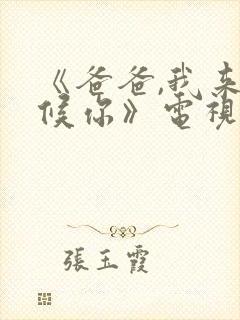 《爸爸,我来
候你》電視
張玉霞